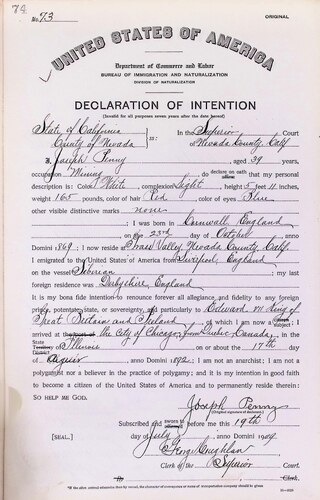 74
No. 73
ORIGINAL.
UNITED STATES OF AMERICA
Department of Commerce and Labor
BUREAU OF IMMIGRATION AND NATURALIZATION
DIVISION OF NATURALIZATION
DECLARATION OF INTENTION
(Invalid for all purposes seven years after the date hereof)
State of California
County of Nevada
ss:
In the Superior Court
of Nevada County, Calf
I, Joseph Penny, aged 39 years,
occupation Mining, do declare on oath that my personal
description is: Color White, complexion Light, height 5 feet 11 inches,
weight 165 pounds, color of hair Red, color of eyes Blue
other visible distinctive marks none
I was born in Cornwall, England
on the 23rd day of October, anno
Domini 1869; I now reside at Grass Valley, Nevada County, Calf.
I emigrated to the United States of America from Liverpool, England
on the vessel Siberian; my last
foreign residence was Derbyshire, England
It is my bona fide intention to renounce forever all allegiance and fidelity to any foreign
prince, potentate, state, or sovereignty, and particularly to Edward VII King of
Great Britain and Ireland, of which I am now a subject;
I arrived at the City of Chicago, from Quebec Canada, in the
State of Illinois on or about the 17th day
of August, anno Domini 1892; I am not an anarchist; I am not a
polygamist nor a believer in the practice of polygamy; and it is my intention in good faith
to become a citizen of the United States of America and to permanently reside therein:
SO HELP ME GOD.
Joseph Penny
(Original signature of declarant)
Subscribed and sworn to before me this 19th
[SEAL.] day of July, anno Domini 1909.
Clerk of the Superior Court.